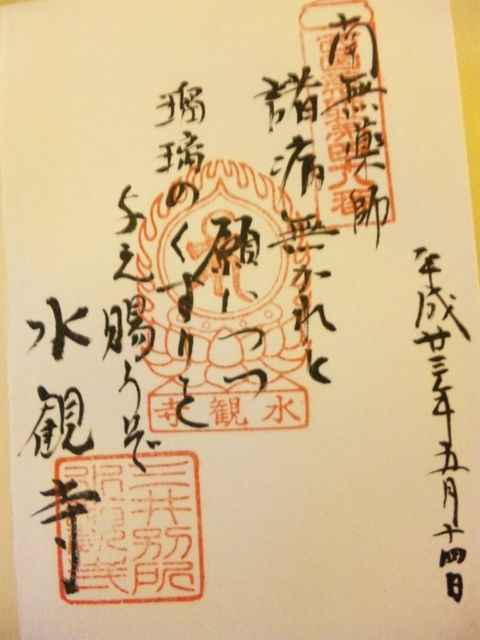 平成廿三年五月十四日
南無薬師
諸病無かれと
願いつつ
瑠璃のくすりを
与え賜うぞ
水観寺
水観寺
三井別所
水観寺